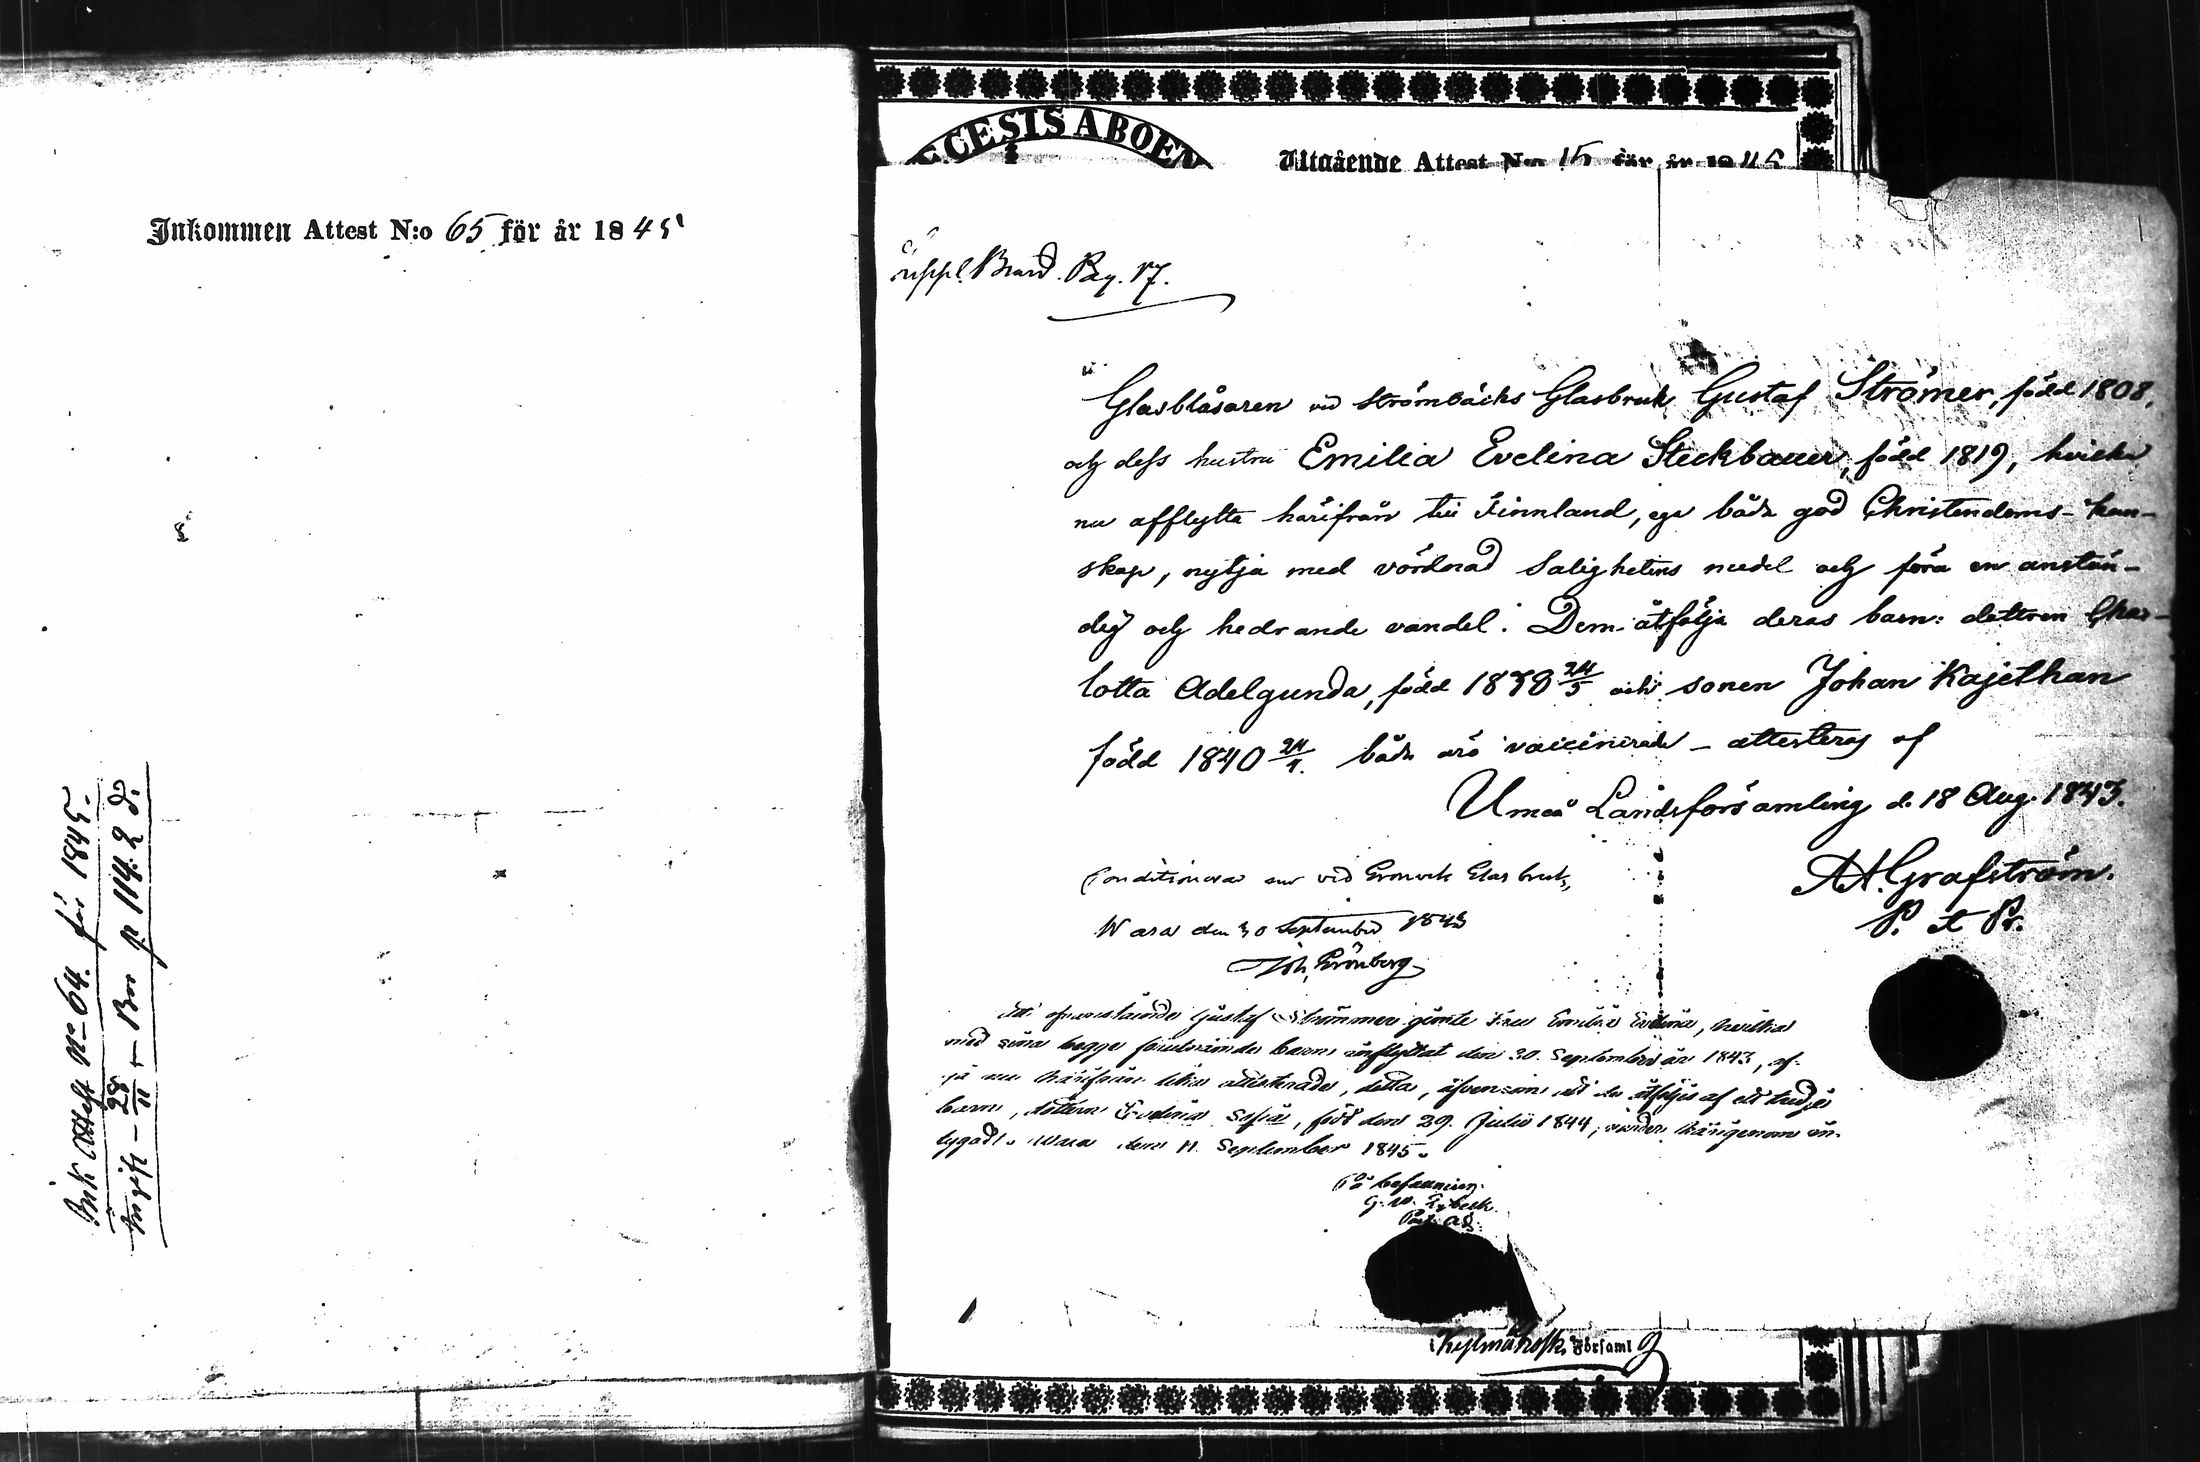 Inkommen Attest N:o 65 för år 1845
Ink Attest No 64. för 1845.
28/11 p. 114. 2 d.
CESIS ABOEN
Utgående Attest N:o 15 för år 1845
Pag. 17.
Glasblåsaren vid Strömbäcks Glasbruk Gustaf Strömer, född 1808,
och dess hustru Emilia Evelina Steckbauer, född 1819, hvilka
nu afflytta härifrån till Finnland, ega båda god Christendoms-kun-
skap, nytja med vördnad Salighetens medel och föra en anstän-
dig och hedrande vandel. Dem åtfölja deras barn: dottren Char-
lotta Adelgunda, född 1838 24/5 och sonen Johan Kajethan
född 1840 24/4. båda äro vaccinerade – attesteras af
Umeå Landsförsamling d. 18 Aug. 1843.
A A. Grafström.
P. et Pr.
Conditionerar nu vid Grönvik Glasbruk,
Wasa den 30 September 1843
Joh. Grönberg
Att ofvanstående Gustaf Strömmer jämte Fru Emilia Evelina, hvilka
med sina begge barn inflyttat den 30. September år 1843, af-
nu härifrån attesterade, detta, äfvensom att de åtföljas af ett tredje
barn, dottern Sofia, född den 29. Julii 1844, varder härigenom in-
tygadt. Wasa den 11. September 1845.
På befallning
G. W.
i Församl